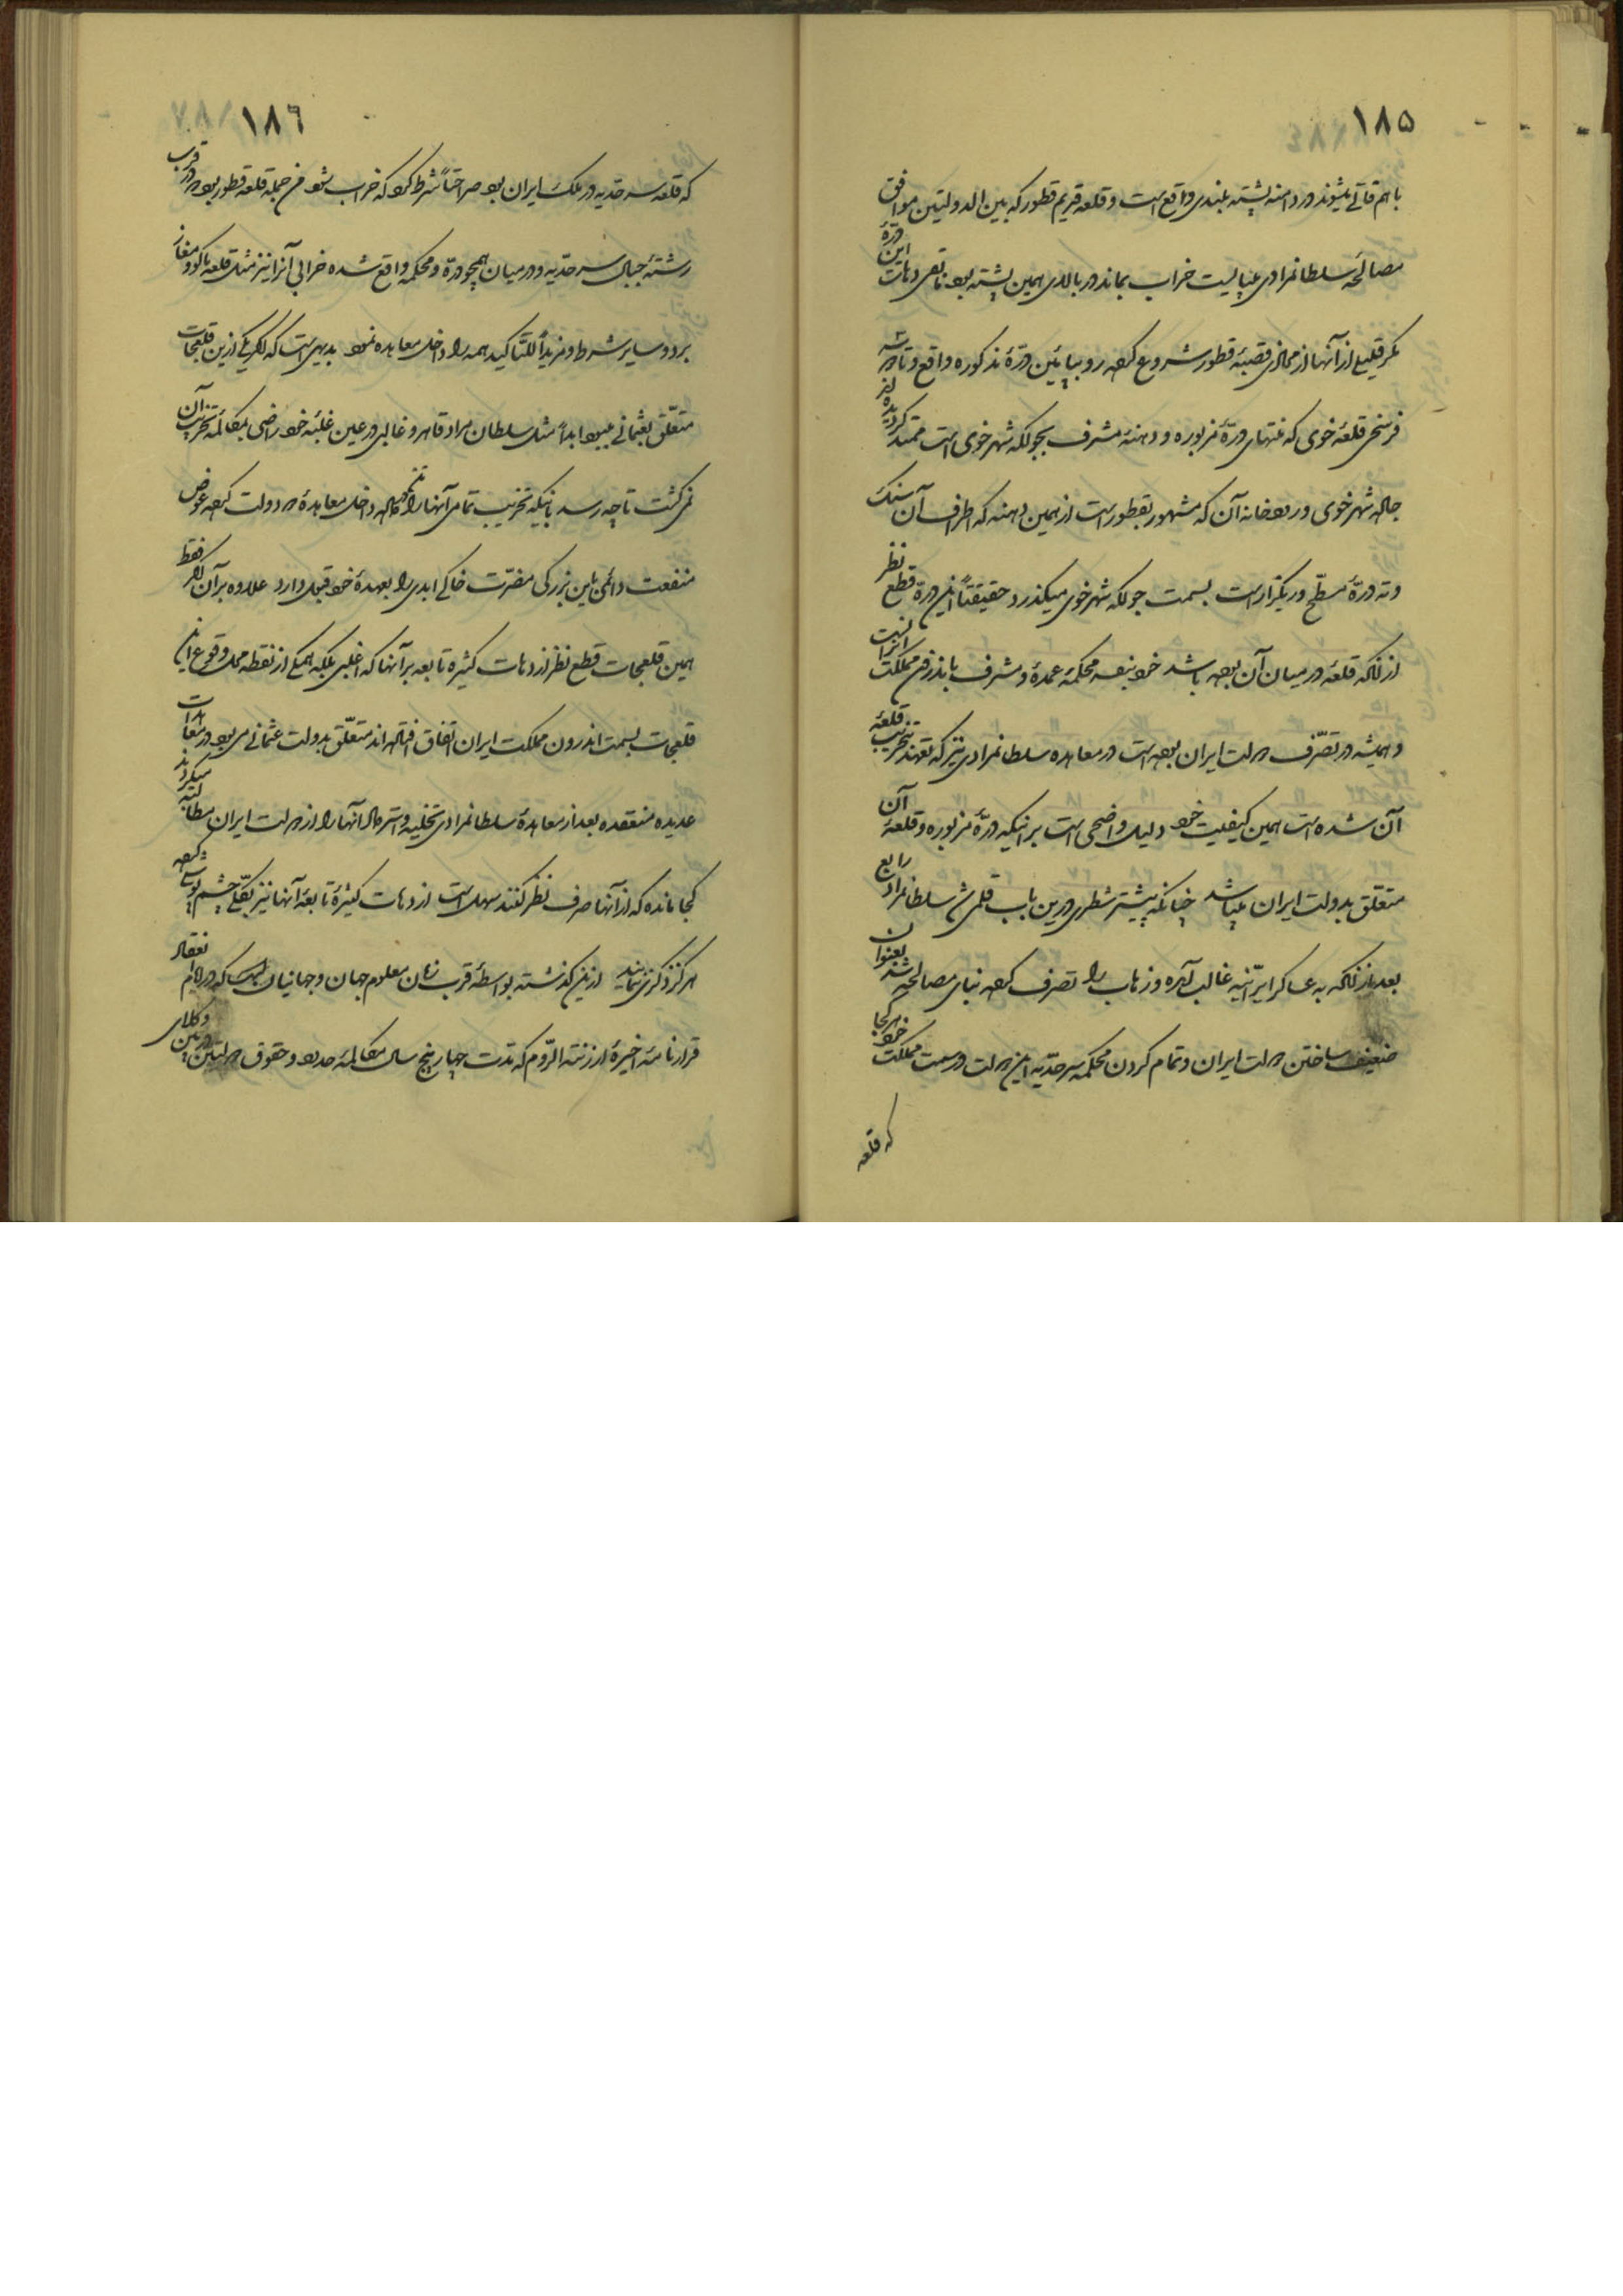 ١٨٥
با هم قاتی میشوند در دامنه پشته بلندی واقع است و قلعه قدیم قطور که بین الدولتین موافق
مصالحه سلطانمرادی میبایست خراب بماند در بالای همین پشته بود باقی دهات این درهٔ
مگر قلیلی از آنها از محاذی قصبهٔ قطور شروع کرده رو بپائین درّهٔ مذکوره واقع و تا سه
فرسخی قلعهٔ خوی که منتهای درّهٔ مزبوره و دهنهٔ مشرف بجولکه شهر خوی است ممتد گردیده اند
جاله شهر خوی و رودخانه آن که مشهور بقطور است از همین دهنه که اطراف آن سنک
و ته درّهٔ مسطّح و ریکزار است بسمت جولکه شهر خوی میکذرد حقیقتاً این درّه قطع نظر
از آنکه قلعه در میان آن بوده باشد خود بنفسه محکمهٔ عمدهٔ و مشرف باندرون مملکت ایرانست
و همیشه در تصرّف دولت ایران بوده است در معاهده سلطانمرادی نیز که تعهد تخریب قلعهٔ
آن شده است همین کیفیت خود دلیل واضحی است بر اینکه درّهٔ مزبوره و قلعهٔ آن
متعلّق بدولت ایران میباشد چنانکه پیشتر شطری درین باب قلمی شد سلطانمراد رابع
بعد از آنکه به عساکر ایرانیه غالب آمده و زهاب را تصرف کرده بنای مصالحه شد بعنوان
ضعیف ساختن دولت ایران و تمام کردن محکمه سرحدّیه این دولت در سمت مملکت خود هرکجا
که قلعه
١٨٦
که قلعه سرحدّیه در ملک ایران بود صراحتاً شرط کرد که خراب شود من جمله قلعه قطور بود که در قرب
رشتهٔ جبال سرحدّیه و در میان همچو درّه و محکمه واقع شده خرابی آنرا نیز مثل قلعه ماکو و مغاز
برد و سایر شرط و مزیداً للتّأکید همه را داخل معاهده نمود بدیهی است که اکر یکی ازین قلعجات
متعلّق بعثمانی میبود ابداً مثل سلطان مراد قاهر و غالبی در عین غلبهٔ خود راضی بمکالمهٔ تخریب آن
نمی کشت تا چه رسد باینکه تخریب تمامی آنها را داخل معاهدهٔ دو دولت کرده عوض
منفعت دائمی باین بزرکی مضرّت خاکی ابدی را بعهدهٔ خود قبول دارد علاوه بر آن اکر فقط
همین قلعجات قطع نظر از دهات کثیره تابعه بر آنها که اغلبی بلکه همکی از نقطه محل وقوع این
قلعجات بسمت اندرون مملکت ایران اتفاق افتاده اند متعلّق بدولت عثمانی می بود در معاهدات
عدیده منعقده بعد از معاهدهٔ سلطانمرادی تخلیه و استرداد آنها را از دولت ایران مطالبه میکردند
کجا مانده که از آنها صرف نظر کنند سهل است از دهات کثیرهٔ تابعهٔ آنها نیز بکلّی چشم پوشی کرده
هرکز ذکری ننمایند ازین کذشته بواسطهٔ قرب زمان معلوم جهان و جهانیان است که در ایام انعقاد
قرارنامهٔ اخیرهٔ ارزنته الرّوم که مدت چهار پنج سال مکالمهٔ حدود و حقوق دولتین در بین وکلای